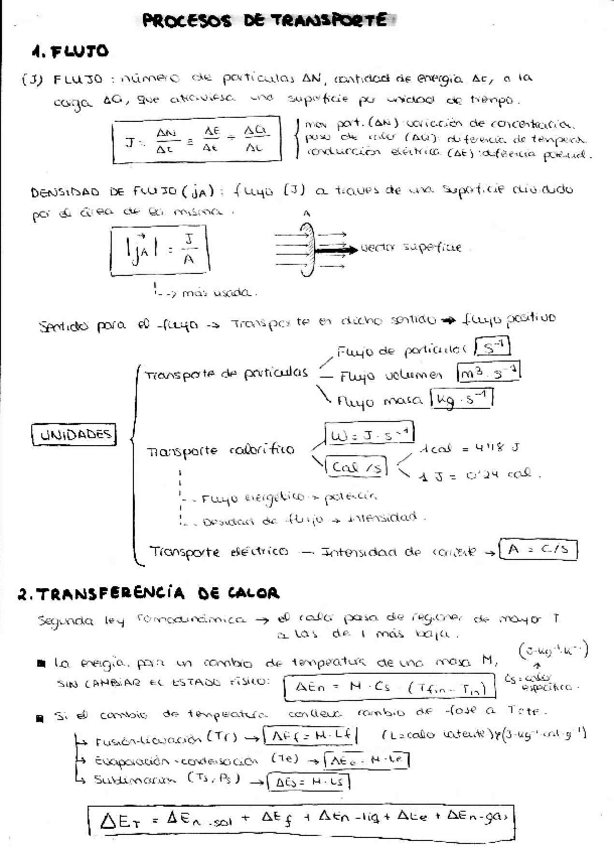 PROCESOS DE TRANSPORTE
1. FLUJO
(J) FLUJO : número de partículas ΔN, cantidad de energía Δε, o la
carga ΔQ, que atraviesa una superficie por unidad de tiempo.
J = ΔN/Δt = ΔE/Δt = ΔQ/Δt
mov. part. (ΔN): variación de concentración.
paso de calor (ΔQ): diferencia de temperat.
conducción eléctrica (ΔE): diferencia potencial.
DENSIDAD DE FLUJO (jA) : flujo (J) a traves de una superficie dividido
por el área de la misma.
|jA| = J/A
A
vector superficie.
↳ más usada.
Sentido para el flujo → Transporte en dicho sentido → flujo positivo
UNIDADES
Transporte de partículas
Flujo de partículas s⁻¹
Flujo volumen m³·s⁻¹
Flujo masa kg·s⁻¹
Transporte calorífico
W = J·s⁻¹
Cal/s
1 cal = 4'18 J
1 J = 0'24 cal.
Flujo energético → potencia
Densidad de flujo → Intensidad.
Transporte eléctrico — Intensidad de corriente → A = C/s
2. TRANSFERENCIA DE CALOR
Segunda ley termodinámica → el calor pasa de regiones de mayor T
a las de T más baja.
■ La energía, para un cambio de temperatura de una masa M,
(J·kg⁻¹·K⁻¹)
SIN CAMBIAR EL ESTADO FÍSICO: ΔEn = M·Cs·(Tfin - Tin)
Cs = calor específico.
■ Si el cambio de temperatura conlleva cambio de fase a T cte.
↳ Fusión-licuación (Tf) → ΔEf = M·Lf (L = calor latente)
↳ Evaporación-condensación (Te) → ΔEe = M·Le
↳ Sublimación (Ts, Ps) → ΔEs = M·Ls
ΔET = ΔEn-sol + ΔEf + ΔEn-liq + ΔEe + ΔEn-gas